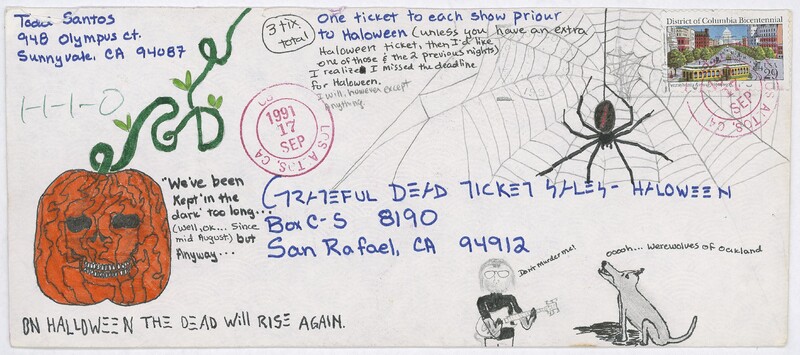 Todd Santos
948 Olympus ct.
Sunnyvale, CA 94087
1-1-1-0
3 tix
total
One ticket to each show priour
to Haloween (unless you have an extra
Haloween ticket, then I'd like
one of those & the 2 previous nights)
I realize I missed the deadline
for Haloween.
I will, however except
Anything
District of Columbia Bicentennial
29
LOS ALTOS, CA
1991
17
SEP
LOS ALTOS, CA
SEP
"We've been
Kept 'in the
dark' too long...
(well, ok... Since
mid August) but
Anyway...
GRATEFUL DEAD TICKET SALES- HALOWEEN
Box C-S 8190
San Rafael, CA 94912
Dont Murder me!
oooh... werewolves of oakland
ON HALLOWEEN THE DEAD Will RISE AGAIN.